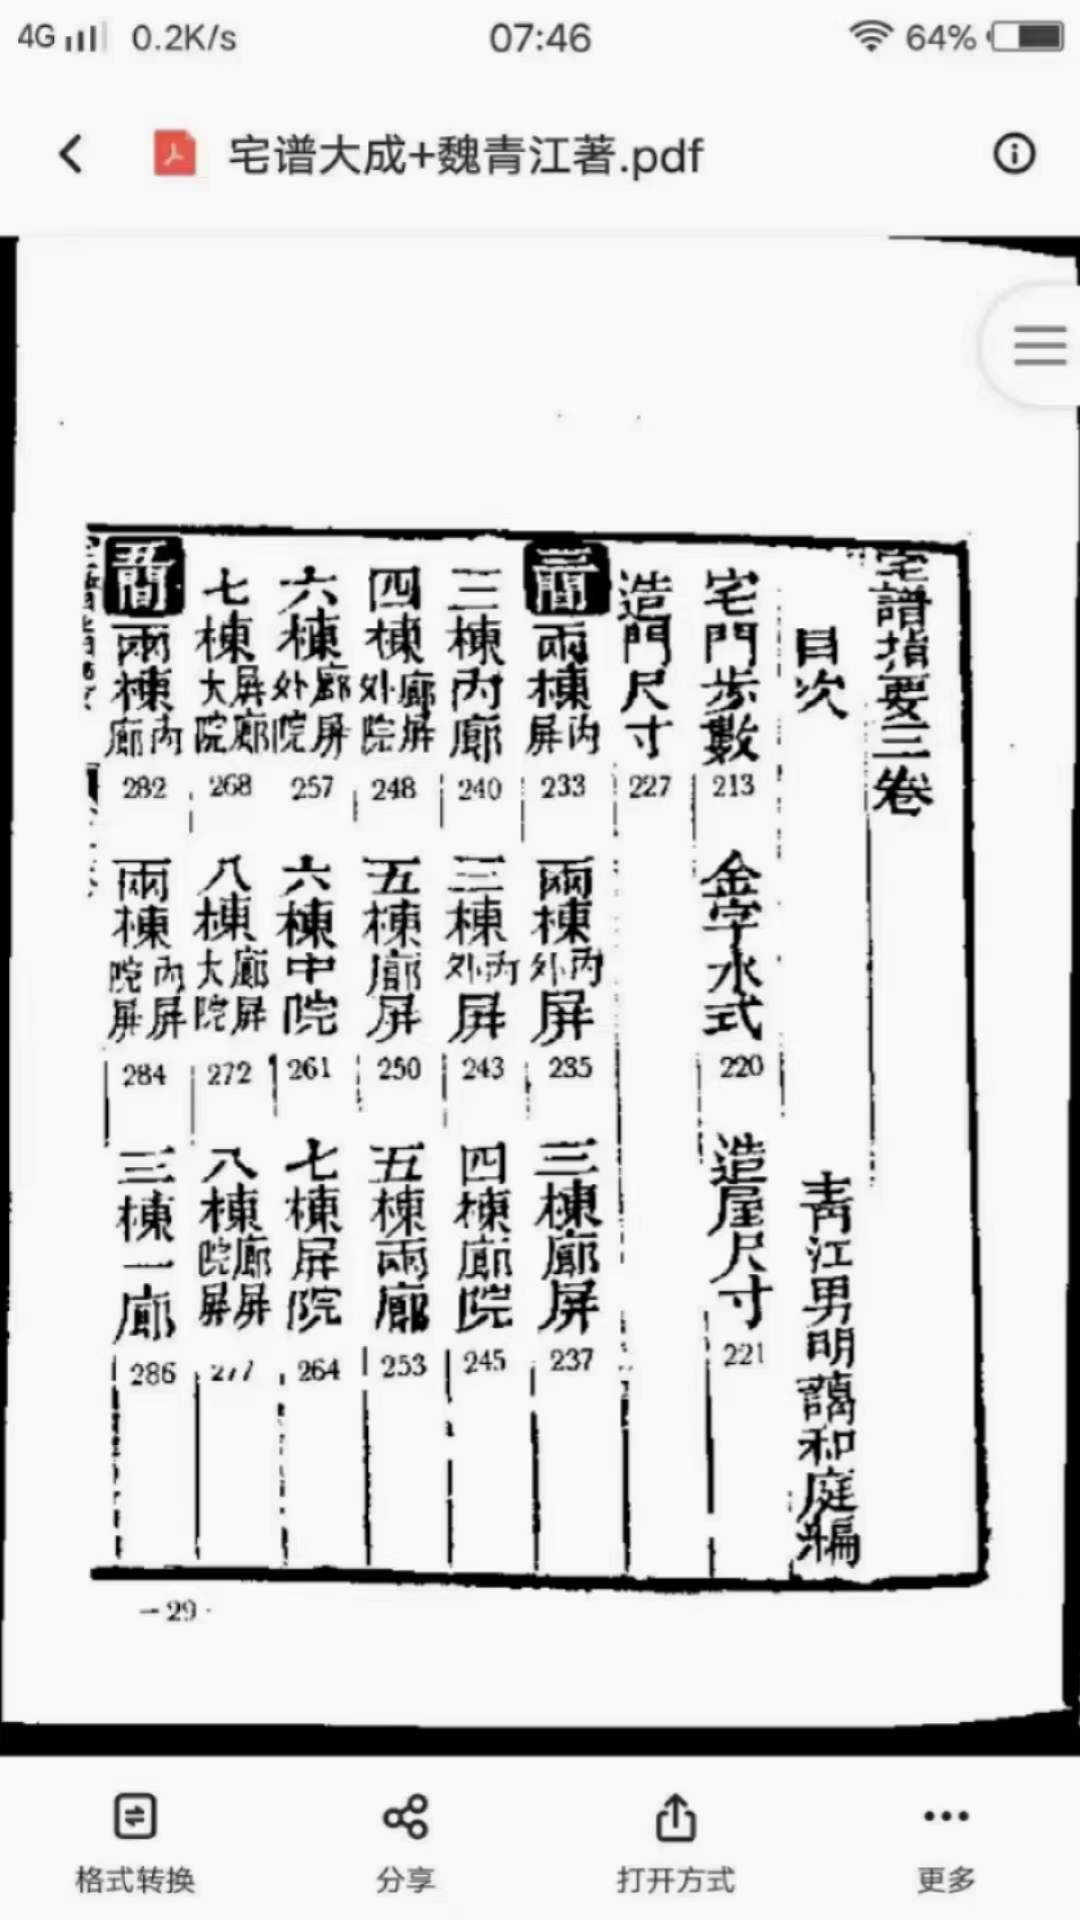 4G 0.2K/s 07:46 64%
宅谱大成+魏青江著.pdf
宅譜指要三卷
目次 青江男明藹和庭編
宅門步數 213 金字水式 220 造屋尺寸 221
造門尺寸 227
三間 兩棟內屏 233 兩棟內外屏 235 三棟廊屏 237
三棟內廊 240 三棟內外屏 243 四棟廊院 245
四棟廊屏外院 248 五棟廊屏 250 五棟兩廊 253
六棟廊屏外院 257 六棟中院 261 七棟屏院 264
七棟屏廊大院 268 八棟廊屏大院 272 八棟廊屏院屏 277
五間 兩棟內廊 282 兩棟內屏院屏 284 三棟一廊 286
-29-
格式转换 分享 打开方式 更多